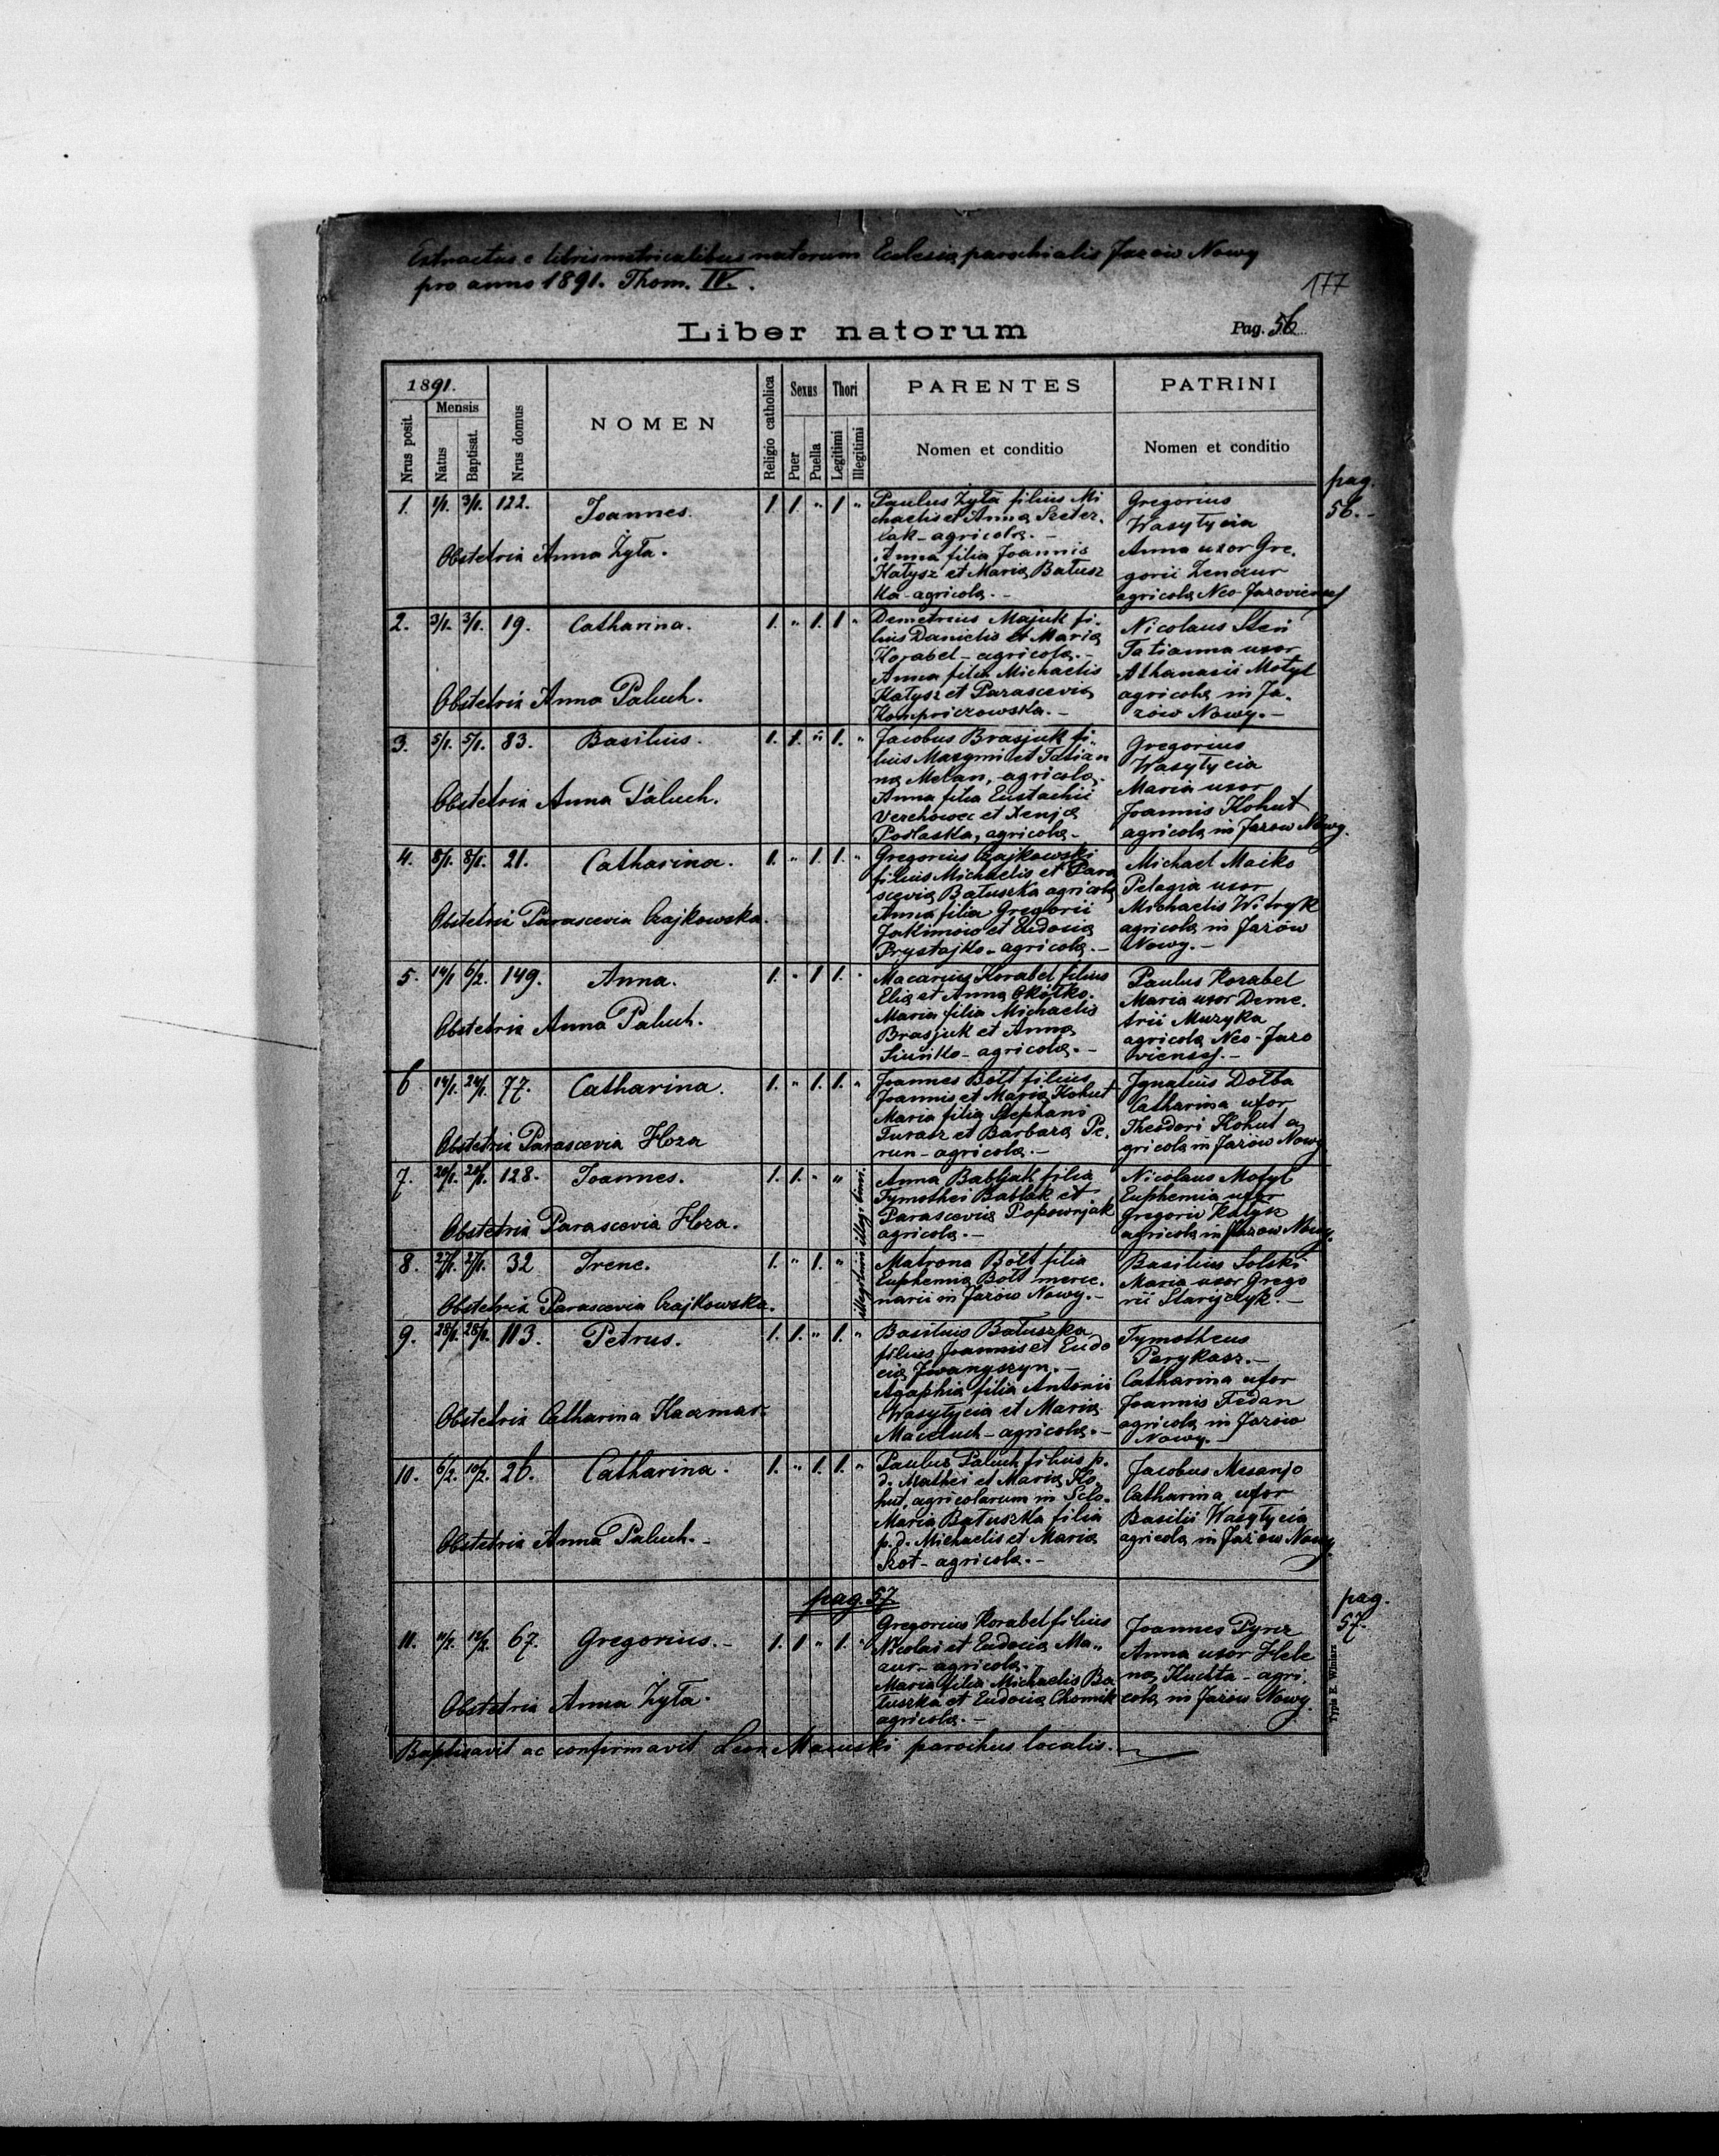 Extractus e libris metricalibus natorum Ecclesiæ parochialis Jazów Nowy
pro anno 1891. Thom. IV.
177
Liber natorum
Pag. 56
1891.
Mensis
Nrus posit.
Natus
Baptisat.
Nrus domus
NOMEN
Religio catholica
Sexus
Puer
Puella
Thori
Legitimi
Illegitimi
PARENTES
Nomen et conditio
PATRINI
Nomen et conditio
pag.
56.-
1. 1/1. 3/1. 122. Joannes. 1 1. " 1 "
Obstetrix Anna Zyła.
Paulus Zyła filius Mi
chaelis et Anna Szeter.
lak - agricolæ. -
Anna filia Joannis
Kałysz et Mariæ Batusz
ka - agricolæ. -
Gregorius
Wasyłycia
Anna uxor Gre.
gorii Zenczur
agricolæ Neo-Jazovienses
2. 3/1. 3/1. 19. Catharina. 1. " 1. 1 "
Obstetrix Anna Paluch.
Demetrius Majuk fi-
lius Danielis et Mariæ
Korabel - agricolæ. -
Anna filia Michaelis
Kałysz et Parasceviæ
Nicolaus Sten
Tatianna uxor
Athanasii Motyl
agricolæ in Ja-
zów Nowy. -
3. 5/1. 5/1. 83. Basilius. 1. 1. " 1. "
Obstetrix Anna Paluch.
Jacobus Brasjuk fi-
lius Maxymi et Tatian
næ Melan, agricolæ.
Anna filia Eustachii
Verchowec et Xenjæ
Podlaska, agricolæ -
Gregorius
Wasyłycia
Maria uxor
Joannis Kohut
agricolæ in Jazow Nowy.
4. 8/1. 8/1. 21. Catharina. 1. " 1. 1. "
Obstetrix Parascevia Czajkowska.
Gregorius Czajkowski
filius Michaelis et Para
sceviæ Batuszka agricolæ
Anna filia Gregorii
Jakimow et Eudociæ
Prystajko - agricolæ. -
Michael Maiko
Pelagia uxor
Michaelis Witryk
agricolæ in Jazów
Nowy. -
5. 14/1 6/2. 149. Anna. 1. " 1 1. "
Obstetrix Anna Paluch.
Macarius Korabel filius
Eliæ et Anna
Maria filia Michaelis
Brasjuk et Annæ
- agricolæ. -
Paulus Korabel
Maria uxor Deme.
trii Muzyka
agricolæ Neo-Jazo
vienses. -
6. 14/1. 24/1. 77. Catharina. 1. " 1. 1. "
Obstetrix Parascevia Hoza
Joannes Bołt filius
Joannis et Mariæ Kohut
Maria filia Stephani
Turasz et Barbaræ Pe.
run - agricolæ. -
Ignatius Dołba
Catharina uxor
Theodori Kohut a
gricolæ in Jazów Nowy
7. 20/1. 20/1. 128. Joannes. 1. 1. " "
illegitimi
Obstetrix Parascevia Hoza.
Anna Babljak filia
Tymothei Bablak et
Parasceviæ Popownjak
agricolæ. -
Nicolaus Motyl
Euphemia uxor
Gregorii Kałysz
agricolæ in Jazow Nowy.
8. 27/1. 27/1. 32 Irene. 1. " 1. "
illegitimi
Obstetrix Parascevia Czajkowska.
Matrona Bołt filia
Euphemiæ Bołt merce.
narii in Jazów Nowy. -
Basilius Solski
Maria uxor Grego
rii Staryczyk. -
9. 28/1. 28/1. 113. Petrus. 1. 1. " 1. "
Obstetrix Catharina Kaczmar.
Basilius Batuszka
filius Joannis et Eudo
ciæ Iwanyszyn. -
Agaphia filia Antonii
Wasyłycia et Mariæ
Macełuch - agricolæ. -
Tymotheus
Parykasz. -
Catharina uxor
Joannis Fedan
agricolæ in Jazów
Nowy. -
10. 6/2. 10/2. 26. Catharina. 1. " 1. 1. "
Obstetrix Anna Paluch. -
Paulus Paluch filius p.
d. Mathei et Mariæ Ko
hut, agricolarum in Sclo.
Maria Batuszka filia
p. d. Michaelis et Mariæ
Szot - agricolæ. -
Jacobus
Catharina uxor
Basilii Wasyłycia
agricolæ in Jazow Nowy.
pag. 57
pag.
57.
11. 11/2. 12/2. 67. Gregorius. - 1. 1 " 1. "
Obstetrix Anna Zyła.
Gregorius Korabel filius
Nicolai et Eudociæ Ma-
zur - agricolæ.
Maria filia Michaelis Ba
tuszka et Eudociæ Chomik
agricolæ. -
Joannes Pyrcz
Anna uxor Hele
næ Kuchta - agri.
colæ in Jazów Nowy.
Typis E. Winiarz
Baptisavit ac confirmavit Leon Mazuski parochus localis.